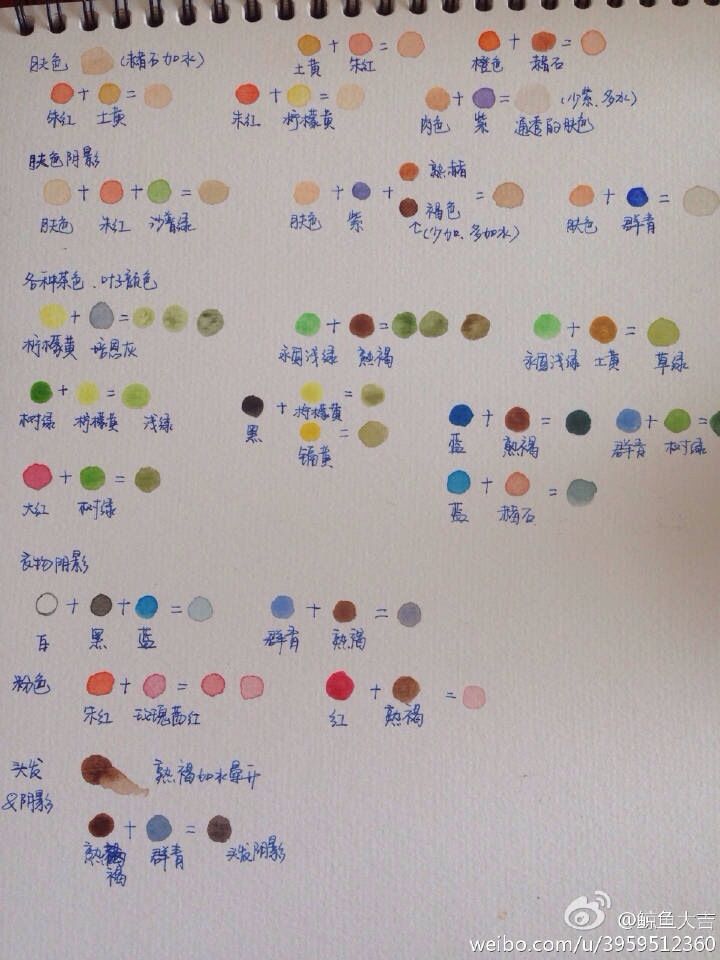 肤色 (赭石加水) 土黄 + 朱红 = 橙色 + 赭石 =
朱红 + 土黄 = 朱红 + 柠檬黄 = 肉色 + 紫 = 通透的肤色 (少紫、多水)
肤色阴影
肤色 + 朱红 + 沙普绿 = 肤色 + 紫 + 熟赭 褐色 ↑(少加、多加水) = 肤色 + 群青 =
各种茶色、叶子颜色
柠檬黄 + 培恩灰 = 永固浅绿 + 熟褐 = 永固浅绿 + 土黄 = 草绿
树绿 + 柠檬黄 = 浅绿 黑 + 柠檬黄 = 镉黄 = 蓝 + 熟褐 = 群青 + 树绿 =
大红 + 树绿 = 蓝 + 赭石 =
衣物阴影
白 + 黑 + 蓝 = 群青 + 熟褐 =
粉色 朱红 + 玫瑰茜红 = 红 + 熟褐 =
头发 熟褐加水晕开
&阴影
熟褐 + 群青 = 头发阴影
@鲸鱼大吉
weibo.com/u/3959512360